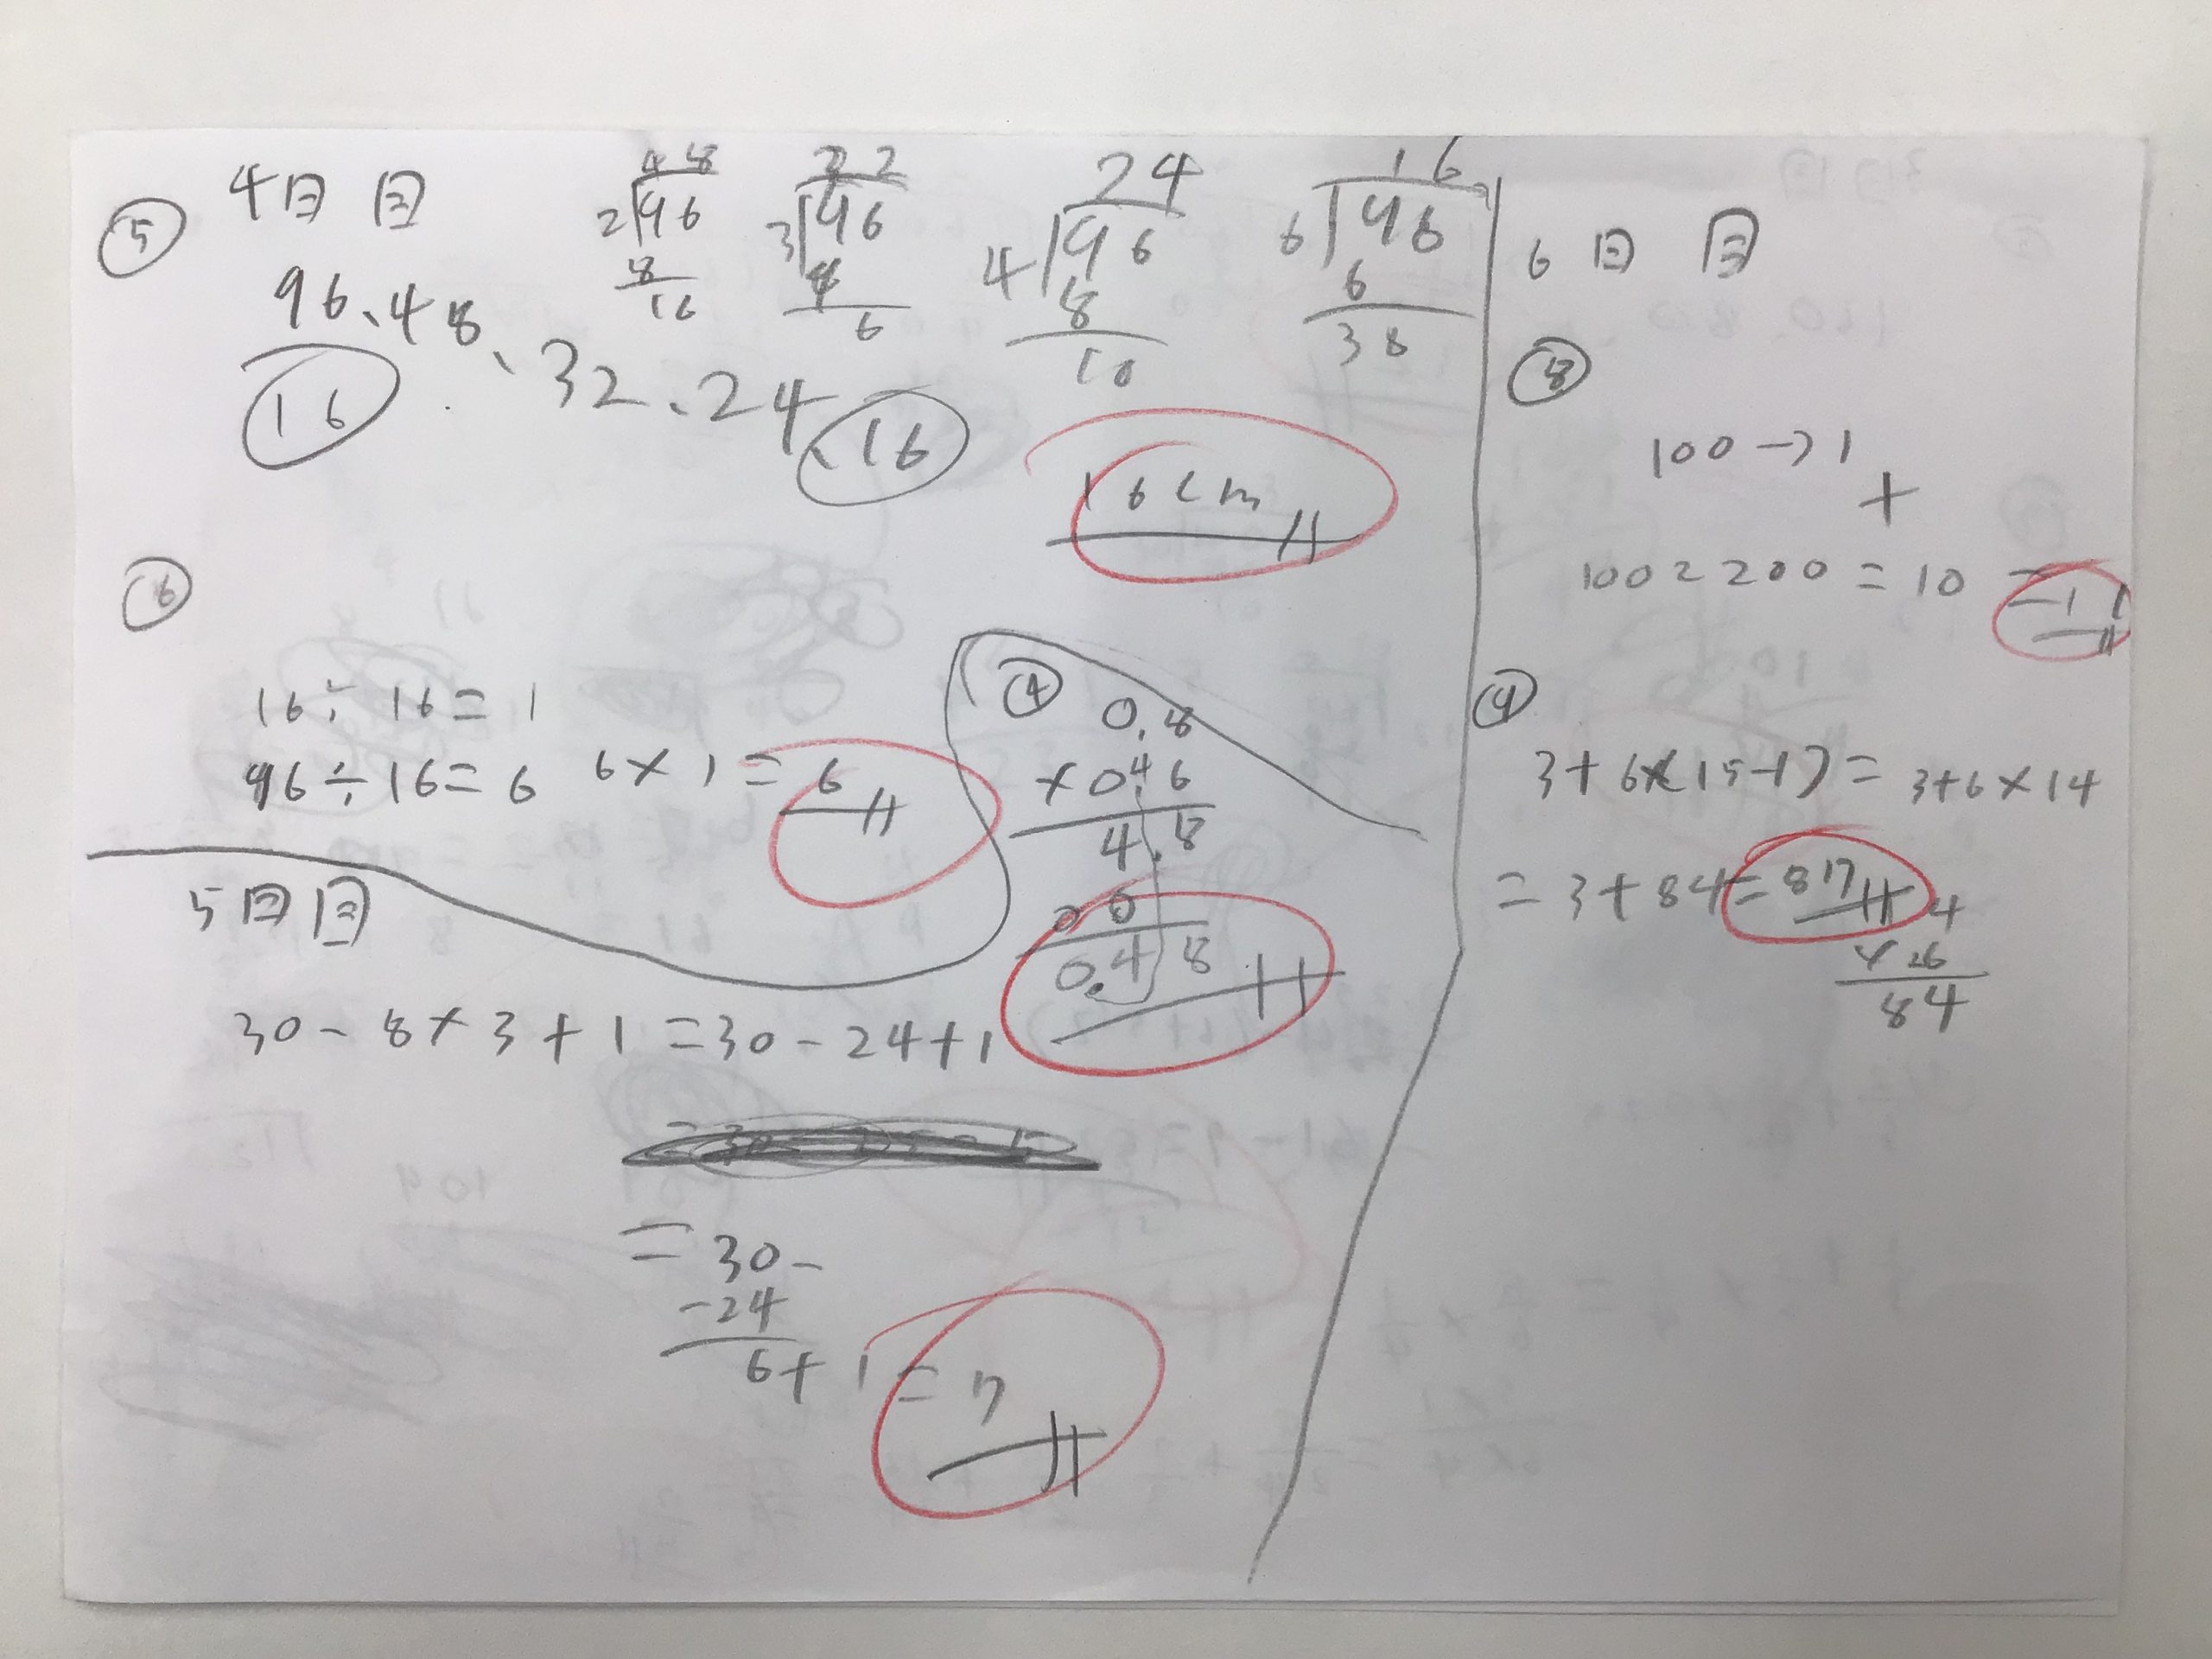 4日目
⑤
96、48、32、24、16
16
48
2)96
8
16
32
3)96
6
24
4)96
8
16
6)96
6
36
16cm
⑥
16÷16=1
96÷16=6 6×1=6
5日目
④
0.8
×0.6
4.8
00
0.48
30-8×3+1=30-24+1
=30-
-24
6+1=7
6日目
⑧
100→1
+
100200=10=11
④
3+6×(15-1)=3+6×14
=3+84=87
4
84